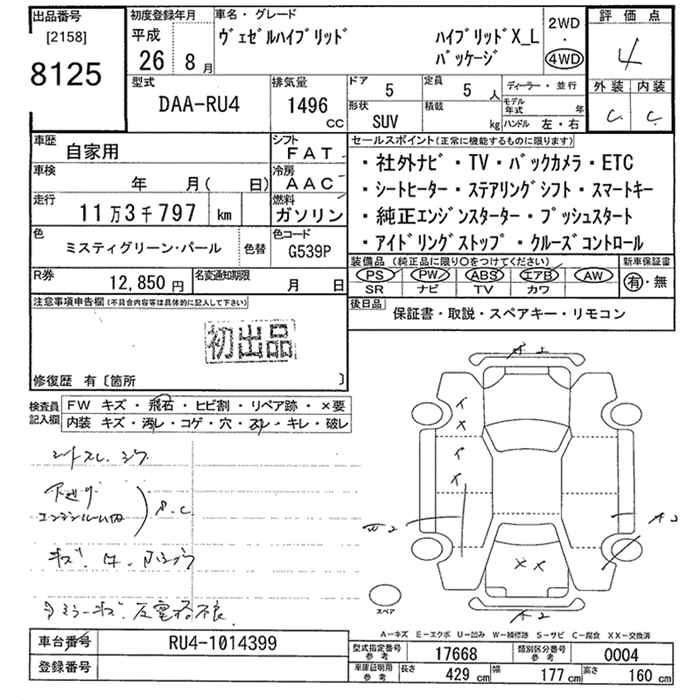 出品番号 初度登録年月 車名・グレード 2WD 評価点
[2158] 平成 ヴェゼルハイブリッド ハイブリッドX_L ・ 4
8125 26年 8月 パッケージ 4WD
型式 排気量 ドア 5 定員 5人 ディーラー・並行 外装 内装
DAA-RU4 1496 cc 形状 SUV 積載 kg モデル年式 年 C C
ハンドル 左・右
車歴 自家用 シフト FAT セールスポイント(正常に機能するものに限ります)
車検 年 月( 日) 冷房 AAC ・社外ナビ・TV・バックカメラ・ETC
走行 11万3千797 km 燃料 ガソリン ・シートヒーター・ステアリングシフト・スマートキー
・純正エンジンスターター・プッシュスタート
色 ミスティグリーン・パール 色替 色コード G539P ・アイドリングストップ・クルーズコントロール
装備品(純正品に限り○をつけてください) 新車保証書
R券 12,850円 名変通知期限 月 日 PS PW ABS エアB AW 有・無
SR ナビ TV カワ
注意事項申告欄(不具合内容等は具体的に記入して下さい) 後日品 保証書・取説・スペアキー・リモコン
初出品
修復歴 有〔箇所 〕
検査員記入欄 FW キズ・飛石・ヒビ割・リペア跡・×要
内装 キズ・汚レ・コゲ・穴・スレ・キレ・破レ
シートスレ シワ
下廻り
エンジンルーム内 S.C
A2
A2
A2
××
スペア
A-キズ E-エクボ U-凹み W-補修跡 S-サビ C-腐食 XX-交換済
車台番号 RU4-1014399 型式指定番号 参考 17668 類別区分番号 参考 0004
登録番号 車庫証明用 参考 長さ 429 cm 幅 177 cm 高さ 160 cm